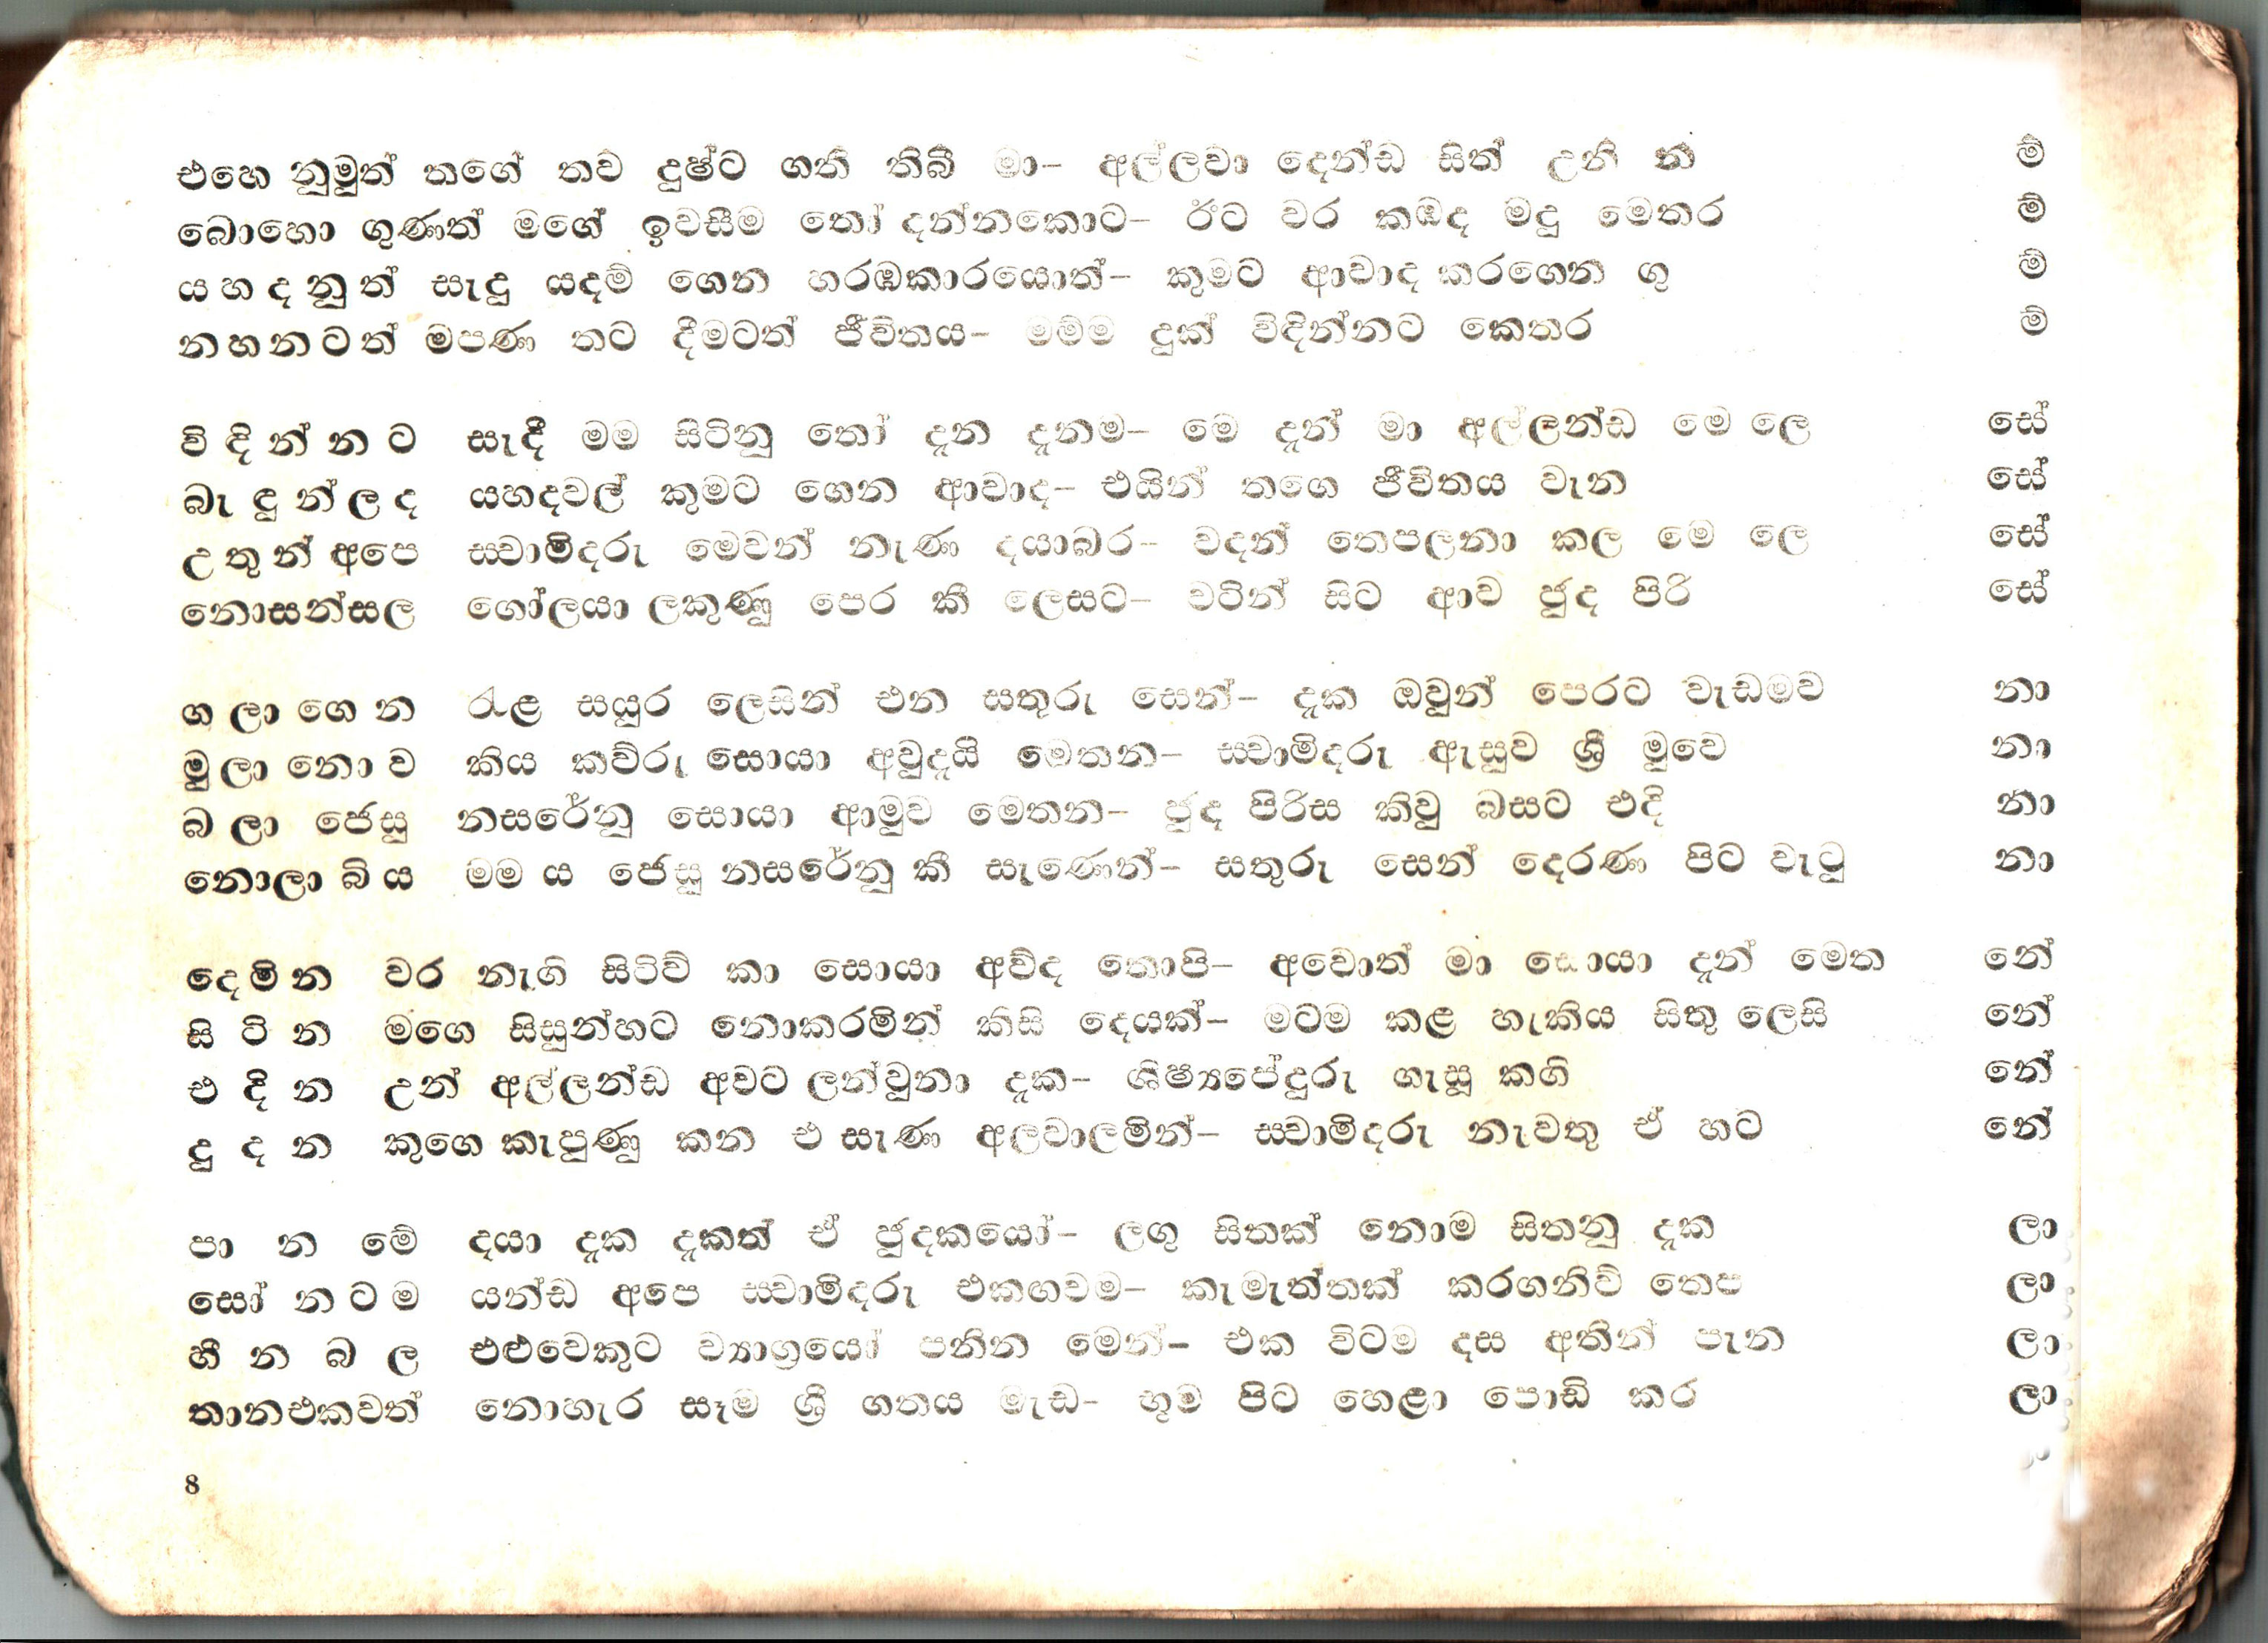 එහෙ නුමුත් තගේ තව දුෂ්ට ගති තිබී මා- අල්ලවා දෙන්ඩ සිත් උනි නි ම්
බොහො ගුණත් මගේ ඉවසීම තෝ දන්නකොට- ඊට වර කඹද මදු මෙතර ම්
ය හ ද නු ත් සැදු යදම් ගෙන හරඹකාරයොත්- කුමට ආවාද කරගෙන ගු ම්
න හ න ට ත් මපණ තට දීමටත් ජීවිතය- මම්ම දුක් විඳින්නට කෙතර ම්
වි ඳි න් න ට සැදී මම සිටිනු තෝ දැන දැනම- මෙ දැන් මා අල්ලන්ඩ මෙ ලෙ සේ
බැ ඳු න් ල ද යහදවල් කුමට ගෙන ආවාද- එයින් තගෙ ජීවිතය වැන සේ
උ තු න් අපෙ ස්වාමිදරු මෙවන් නැණ දයාබර- වදන් තෙපලනා කල මෙ ලෙ සේ
නොසන්සල ගෝලයා ලකුණු පෙර කී ලෙසට- වටින් සිට ආව ජුද පිරි සේ
ග ලා ගෙ න රැළ සයුර ලෙසින් එන සතුරු සෙන්- දැක ඔවුන් පෙරට වැඩමව නා
මු ලා නො ව කිය කව්රු සොයා අවුදැයි මෙතන- ස්වාමිදරු ඇසුව ශ්‍රී මුවෙ නා
බ ලා ජෙසු නසරේනු සොයා ආමුව මෙතන- ජුද පිරිස කිවු බසට එදි නා
නොලා බි ය මම ය ජෙසු නසරේනු කී සැණෙන්- සතුරු සෙන් දෙරණ පිට වැටු නා
දෙමි න වර නැගි සිටිව් කා සොයා අව්ද තොපි- අවොත් මා සොයා දැන් මෙත නේ
සි ටි න මගෙ සිසුන්හට නොකරමින් කිසි දෙයක්- මටම කළ හැකිය සිතු ලෙසි නේ
එ දි න උන් අල්ලන්ඩ අවට ලන්වුනා දැක- ශිෂ්‍යපේදුරු ගැසූ කගි නේ
දු ද න කුගෙ කැපුණු කන එ සැණ අලවාලමින්- ස්වාමිදරු නැවතු ඒ හට නේ
පා න මේ දයා දැක දැකත් ඒ ජුදකයෝ- ලගු සිතක් නොම සිතනු දැක ලා
සෝ න ට ම යන්ඩ අපෙ ස්වාමිදරු එකඟවම- කැමැත්තක් කරගනිව් තෙප ලා
හී න බ ල එළුවෙකුට ව්‍යාග්‍රයෝ පනින මෙන්- එක විටම දස අතින් පැන ලා
තානඑකවත් නොහැර සෑම ශ්‍රී ගතය මැඩ- භූම පිට හෙළා පොඩි කර ලා
8